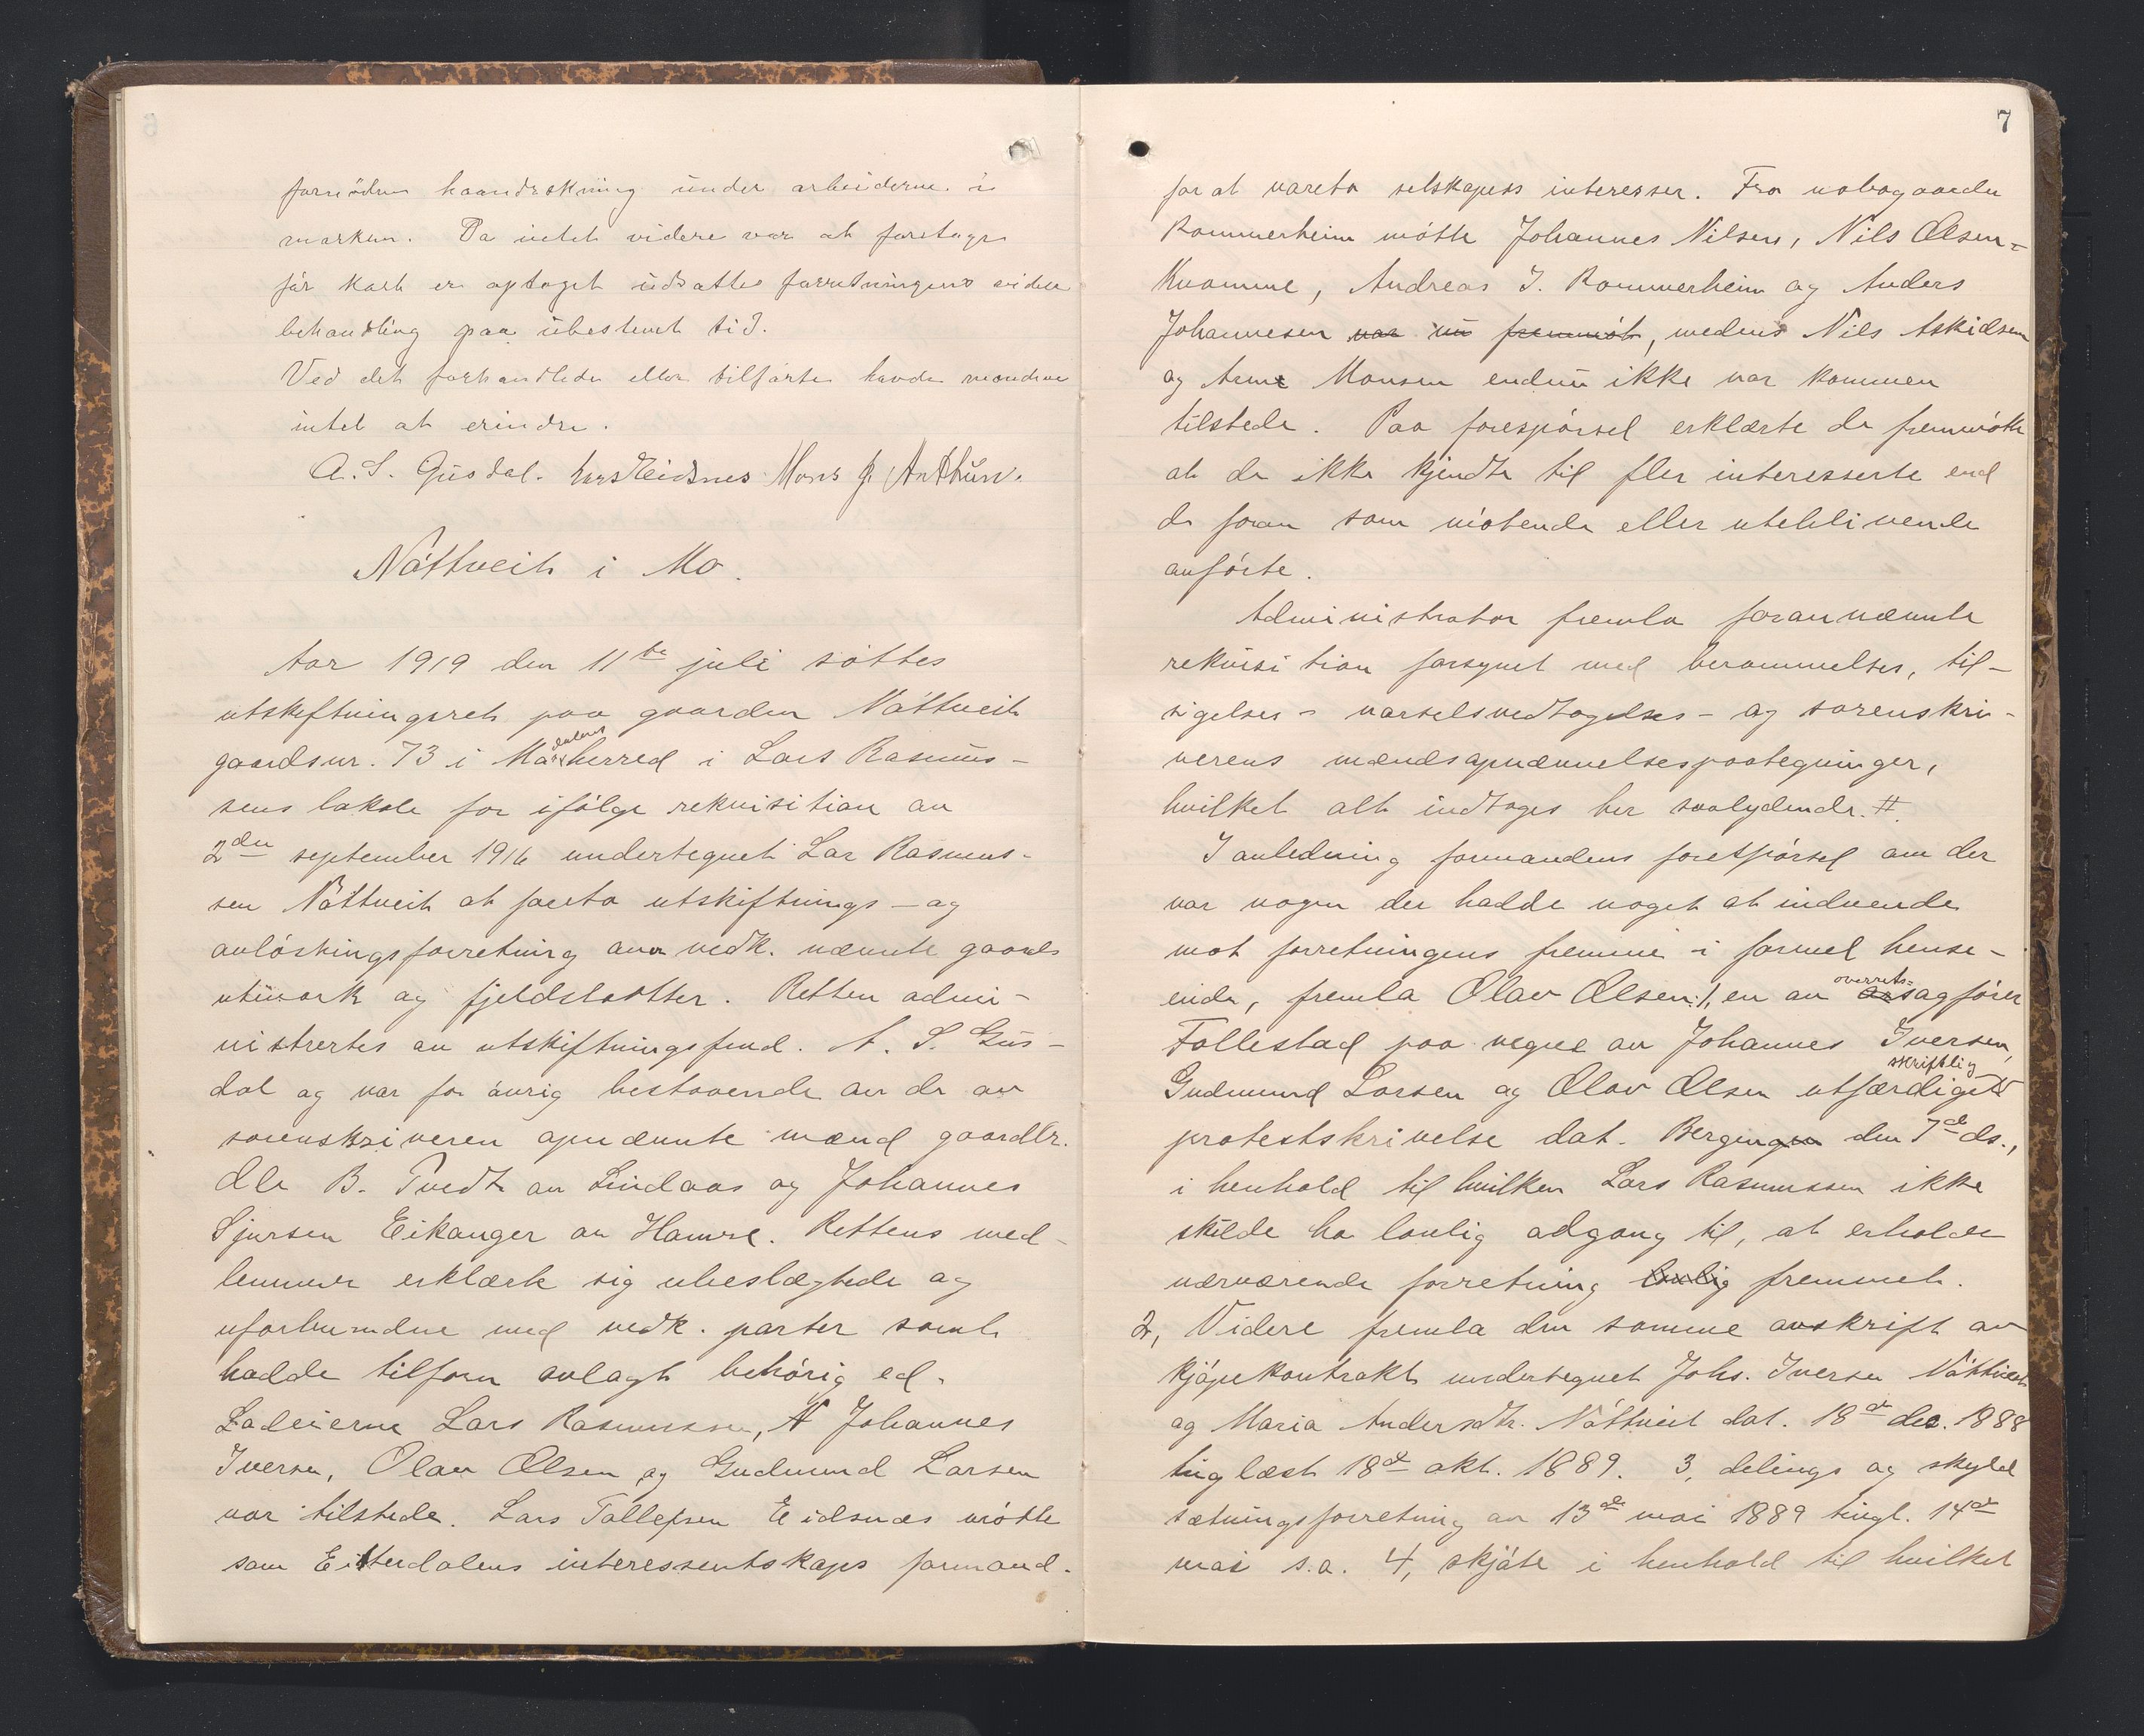 fornödne haandrækning under arbeiderne i
marken. Da intet videre var at foretage
før kart er optaget utsattes forretningens videre
behandling paa ubestemt tid.
Ved det forhandlede eller tilførte havde mændene
intet at erindre.
A. S. Gusdal. Lars Eidsnes Mons J. Anthun.
Nåttveit i Mo.
Aar 1919 den 11te juli sattes
utskiftningsret paa gaarden Nåttveit
gaardsnr. 73 i Modalens herred i Lars Rasmus-
sens lokale for ifölge rekvisition av
2den september 1916 undertegnet Lar Rasmus-
sen Nåttveit at foreta utskiftnings- og
avlösningsforretning over vedk. nævnte gaards
utmark og fjeldslåtter. Retten admi-
nistrertes av utskiftningsfmd. A. S. Gus-
dal og var for övrig bestaaende av de av
sorenskriveren opnævnte mænd gaardbr.
Ole B. Tvedt av Lindaas og Johannes
Sjursen Eikanger av Hamre. Rettens med-
lemmer erklærte sig ubeslægtede og
uforbundne med vedk. parter samt
hadde tilforn avlagt behörig ed.
Lodeierne Lars Rasmussen, N Johannes
Iversen, Olav Olsen og Gudmund Larsen
var tilstede. Lars Tollefsen Eidsnes mötte
som Eitterdalens interessentskaps formand.
7
for at vareta selskapets interesser. Fra nabogaarden
Rommerheim mötte Johannes Nilsen, Nils Olsen-
Kvamme, Andreas J. Rommerheim og Anders
Johannesen var nu fremmöt, medens Nils Askildsen
og Arne Monsen endnu ikke var kommen
tilstede. Paa forespörsel erklærte de fremmötte
at de ikke kjendte til fler interesserte end
de foran som mötende eller utebli vende
anförte.
Administrator fremla forannævnte
rekvisition forsynet med berammelses, til-
sigelses- varselsvedtagelses- og sorenskri-
verens mændsopnævnelsespaategninger,
hvilket alt indtages her saalydende. #
I anledning formandens forespörsel om der
var nogen der hadde noget at indvende
mot forretningens fremme i formel hense-
ende, fremla Olav Olsen: 1, en av overrets- sagförer
Follestad paa vegne av Johannes Iversen,
Gudmund Larsen og Olav Olsen utfærdiget skriftlig
protestskrivelse dat. Bergen den 7de ds.,
i henhold til hvilken Lars Rasmussen ikke
skulde ha lovlig adgang til, at erholde
nærværende forretning lovlig fremmet.
2, Videre fremla den samme avskrift av
kjøpekontrakt undertegnet Johs. Iversen Nåttveit
og Maria Andersdtr. Nåttveit dat. 18de des. 1888
tinglæst 18de okt. 1889. 3, delings og skyld
sætningsforretning av 13de mai 1889 tingl. 14de
mai s.a. 4, skjöte i henhold til hvilket